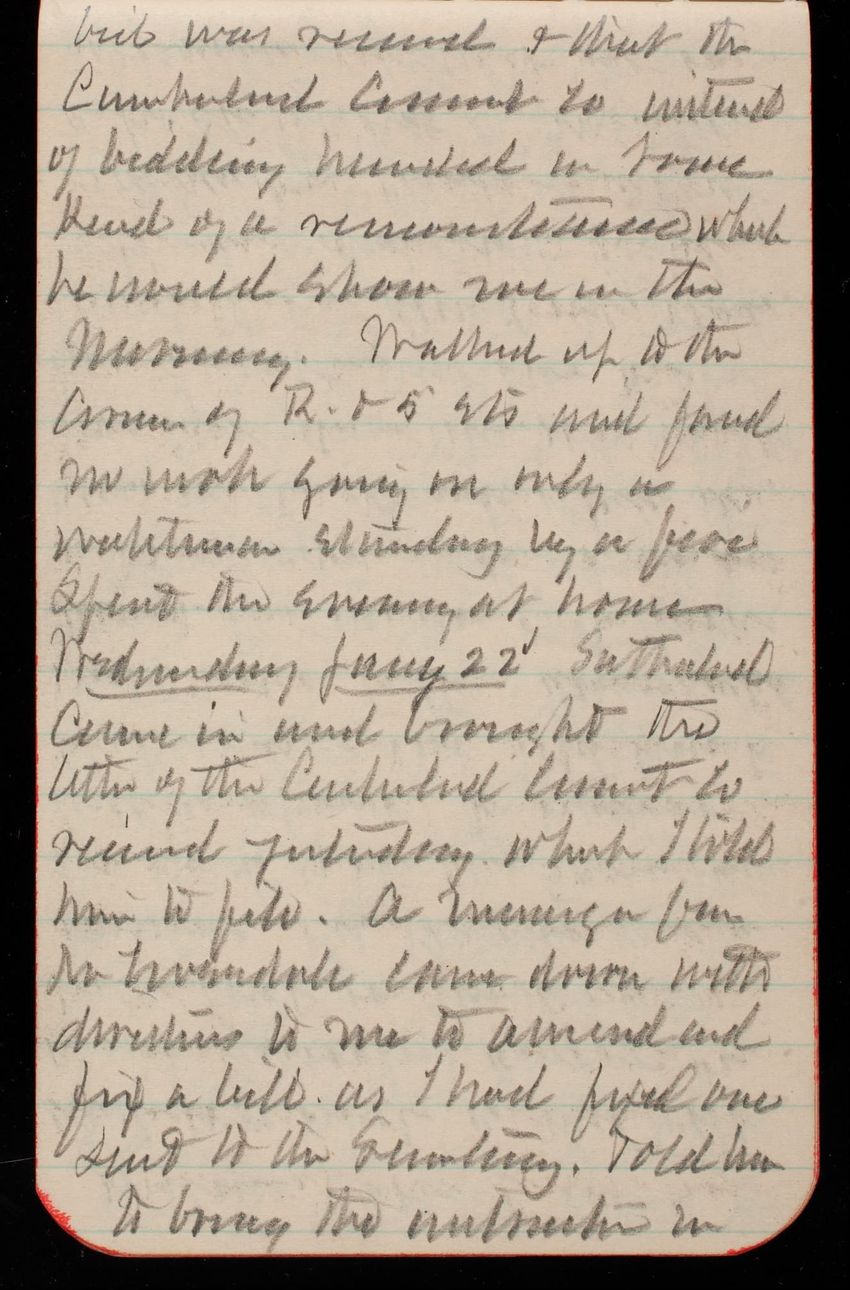 bid was received & that the
Cumberland Cement Co instead
of bidding handed in some
kind of a remonstrance which
he would show me in the
Morning. Walked up to the
corner of R. & 5 sts and found
no work going on only a
watchman standing by a fire
Spent the evening at home
Wednesday Jany 22 Sutherland
Came in and brought the
letter of the Cumberland Cement Co
received yesterday which I told
him to file. A messenger from
Dr Truesdale came down with
directions to me to amend and
fix a bill as I had fixed one
sent to the Secretary. Told him
to bring the instruction in